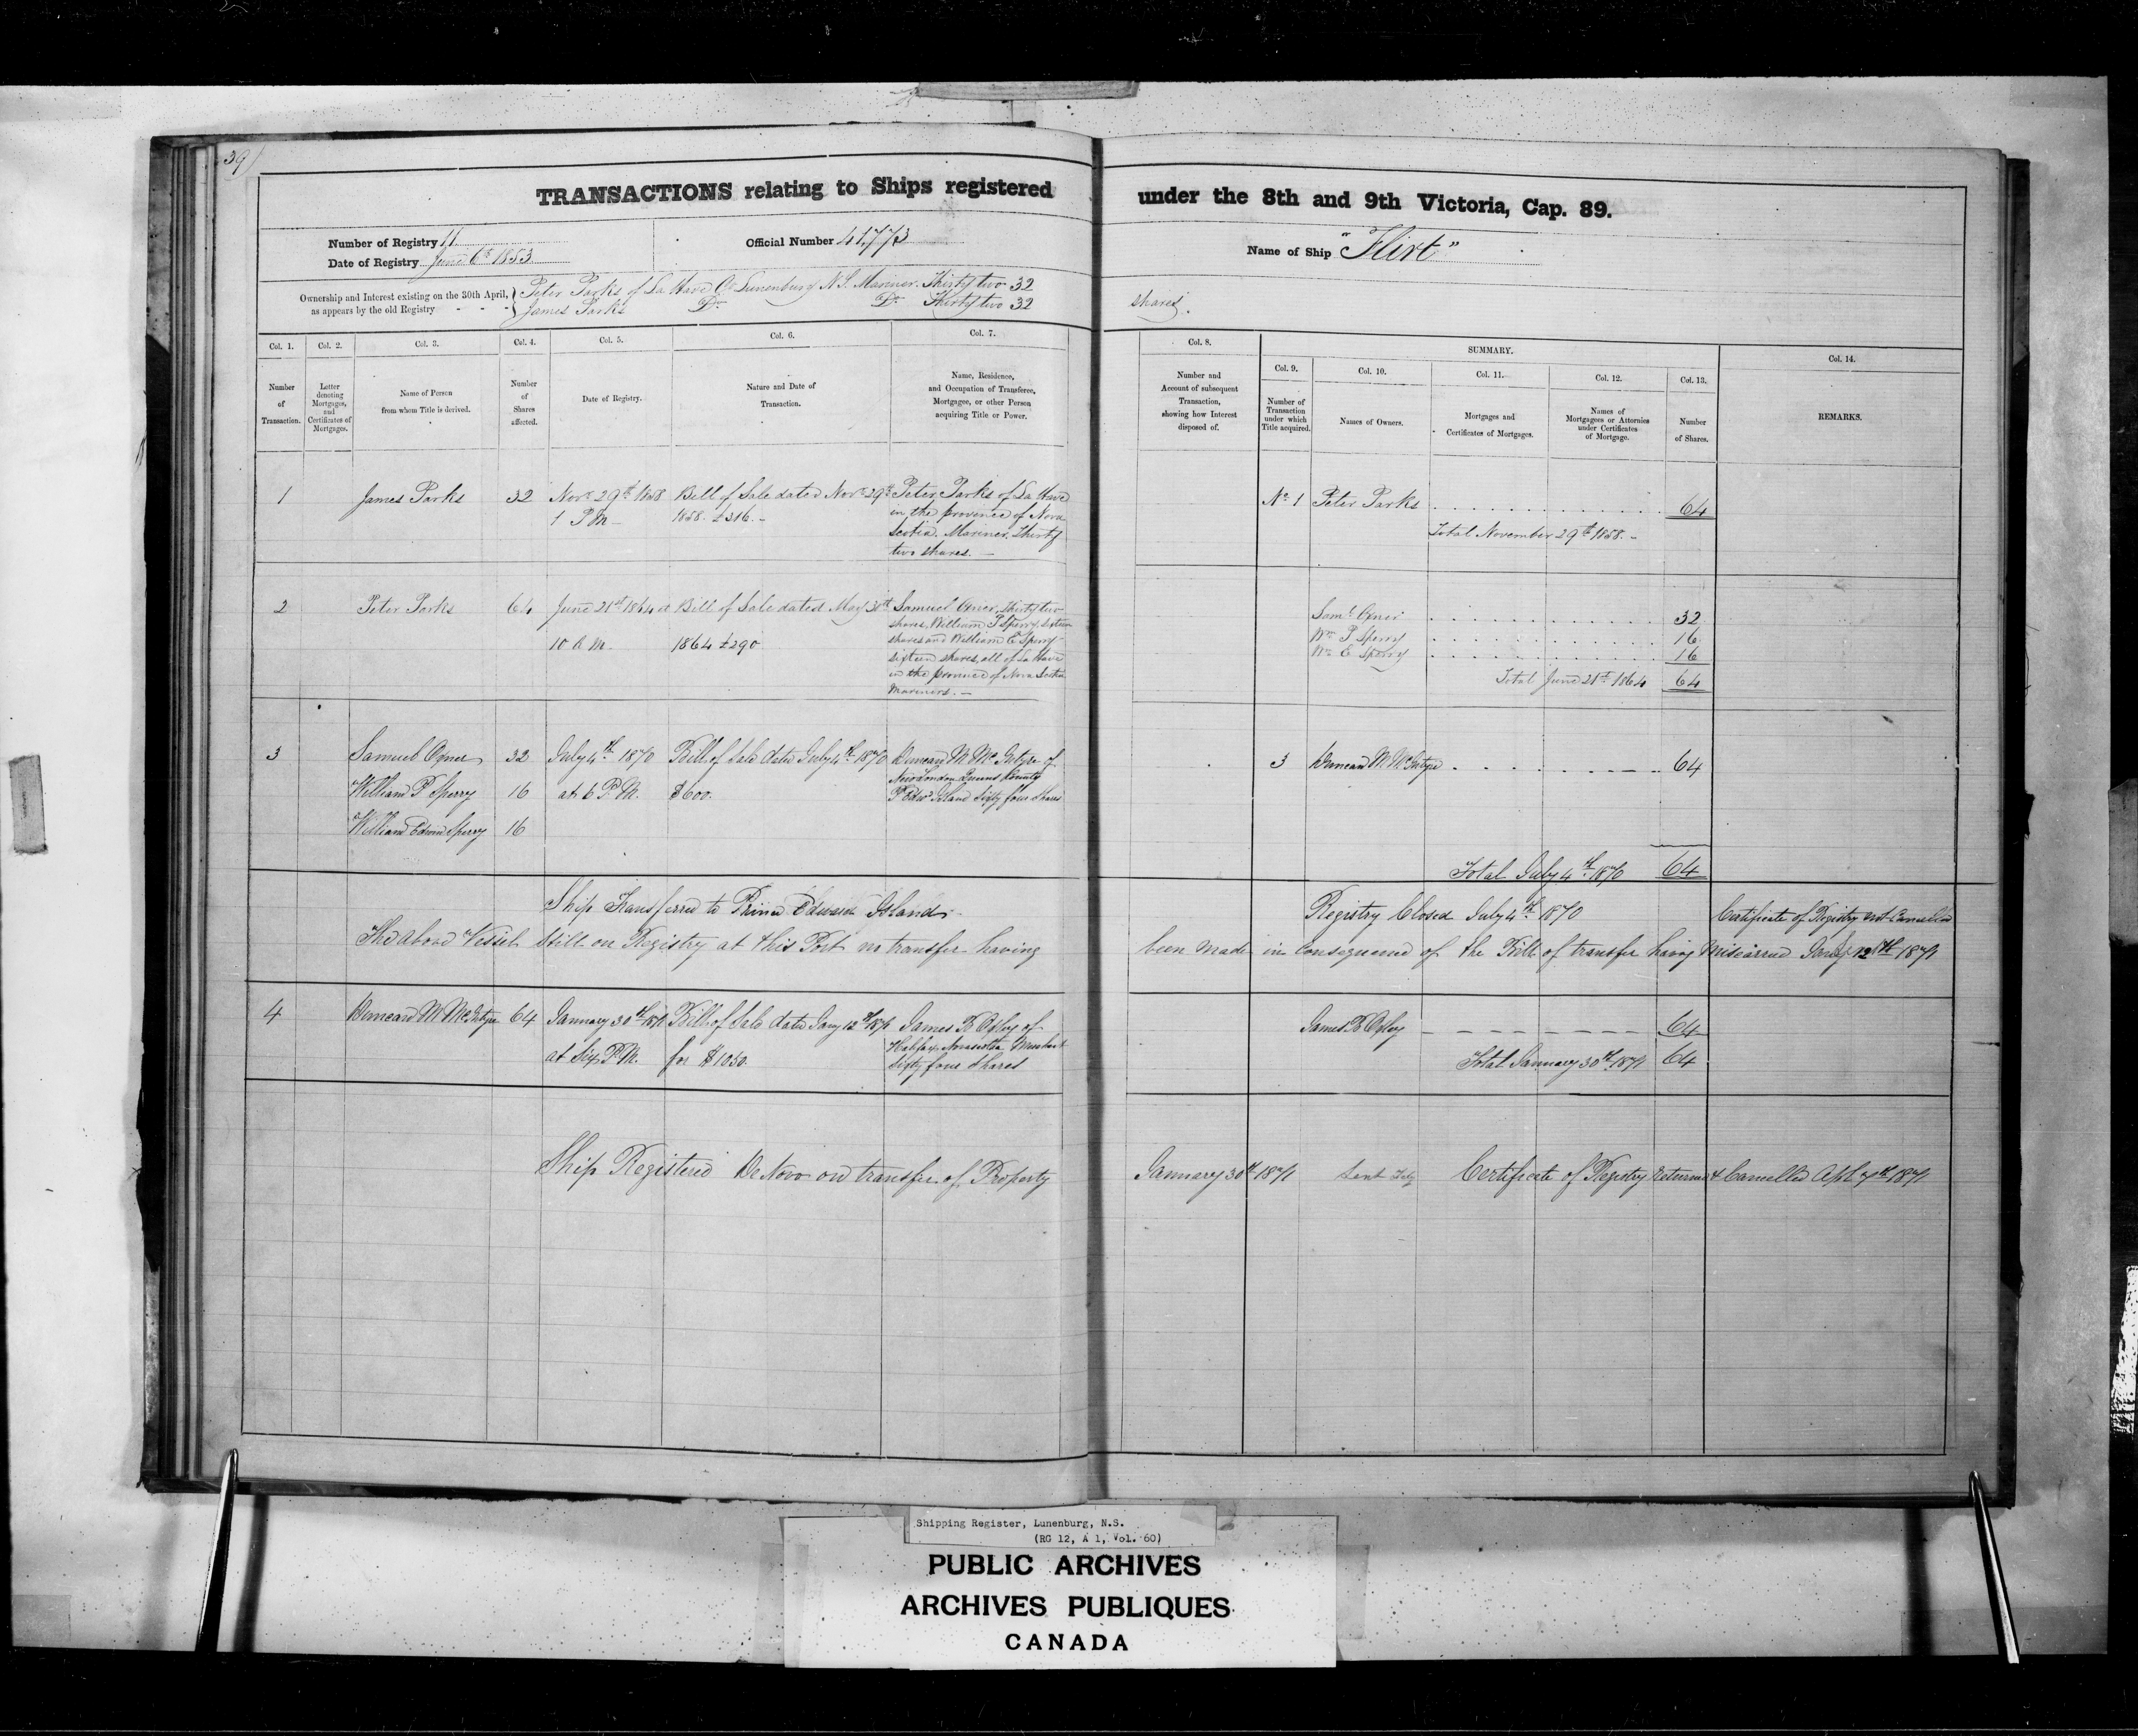 39
TRANSACTIONS relating to Ships registered under the 8th and 9th Victoria, Cap. 89.
Number of Registry 11
Official Number 41,773
Name of Ship "Flirt"
Date of Registry June 6th 1853
Ownership and Interest existing on the 30th April, as appears by the old Registry
Peter Parks of La Have Co Lunenburg N.S. Mariner. Thirty two 32 shares.
James Parks Do Do Thirty two 32
Col. 1. Col. 2. Col. 3. Col. 4. Col. 5. Col. 6. Col. 7. Col. 8. SUMMARY. Col. 14.
Col. 9. Col. 10. Col. 11. Col. 12. Col. 13.
Number of Transaction.
Letter denoting Mortgages, and Certificates of Mortgages.
Name of Person from whom Title is derived.
Number of Shares affected.
Date of Registry.
Nature and Date of Transaction.
Name, Residence, and Occupation of Transferee, Mortgagee, or other Person acquiring Title or Power.
Number and Account of subsequent Transaction, showing how Interest disposed of.
Number of Transaction under which Title acquired.
Names of Owners.
Mortgages and Certificates of Mortgages.
Names of Mortgagees or Attornies under Certificates of Mortgage.
Number of Shares.
REMARKS.
1 James Parks 32 Novr 29th 1858 Bill of Sale dated Novr 29th Peter Parks of La Have
1 P.M. 1858. £316. in the province of Nova
Scotia. Mariner. Thirty
two shares.
No 1 Peter Parks 64
Total November 29th 1858.
2 Peter Parks 64 June 21st 1864 at Bill of Sale dated May 31st Samuel Oxner, Thirty two
shares, William P Sperry, sixteen
10 A.M. 1864 £290 shares and William E Sperry
sixteen shares, all of La Have
in the province of Nova Scotia
Mariners.
Saml Oxner 32
Wm P Sperry 16
Wm E Sperry 16
Total June 21st 1864 64
3 Samuel Oxner 32 July 4th 1870 Bill of Sale dated July 4th 1870 Duncan M McIntyre of
New London Queens County
William P Sperry 16 at 6 P.M. $600. P Edwd Island Sixty four Shares
William Edwin Sperry 16
3 Duncan M McIntyre 64
Total July 4th 1870 64
Ship Transferred to Prince Edward Island. Registry Closed July 4th 1870 Certificate of Registry not Cancelled
The above Vessel still on Registry at this Port no transfer having been made in consequence of the Bill of transfer having Miscarried Jany 12th 1871
4 Duncan M McIntyre 64 January 30th 1871 Bill of Sale dated Jany 12th 1871 James B Oxley of
Halifax Novascotia Merchant
at Six P.M. for $1050. Sixty four Shares
James B Oxley 64
Total January 30th 1871 64
Ship Registered De Novo on transfer of Property January 30th 1871 Certificate of Registry Returned & Cancelled Apl 7th 1871
Shipping Register, Lunenburg, N.S.
(RG 12, A 1, Vol. 60)
PUBLIC ARCHIVES
ARCHIVES PUBLIQUES
CANADA